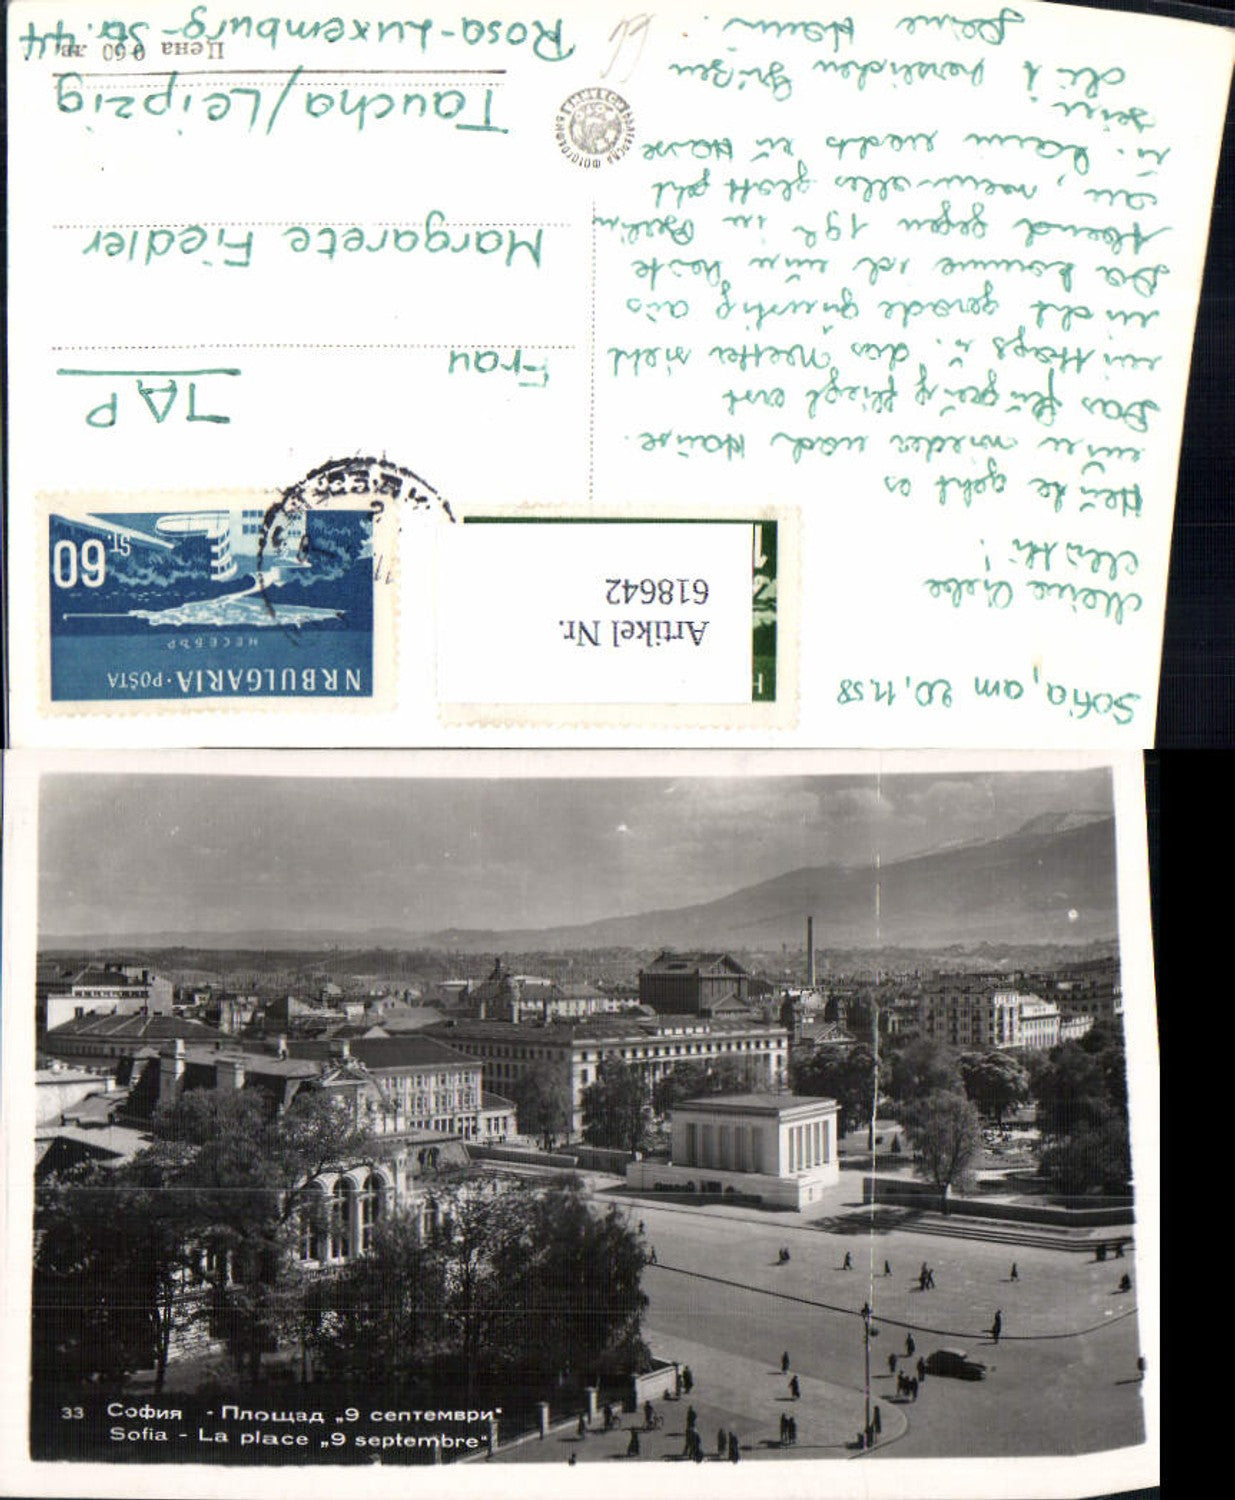 Sofia, am 20.11.58
Meine liebe
Mutti!
Heute geht es
nun wieder nach Hause.
Das Flugzeug fliegt erst
mittags u. das Wetter sieht
nicht gerade günstig aus
Da komme ich nun heute
Abend gegen 19h in Berlin
an, wenn alles glatt geht
u. kann nachts zu Hause
sein
Mit herzlichen Grüßen
Deine
TAP
Frau
Margarete Fiedler
Taucha/Leipzig
Цена 0·60 лв.
Rosa-Luxemburg-Str. 44
NRBULGARIA·POŠTA
НЕСЕБЪР
60 ST.
Artikel Nr.
618642
33 София - Площад „9 септември"
Sofia - La place „9 septembre"